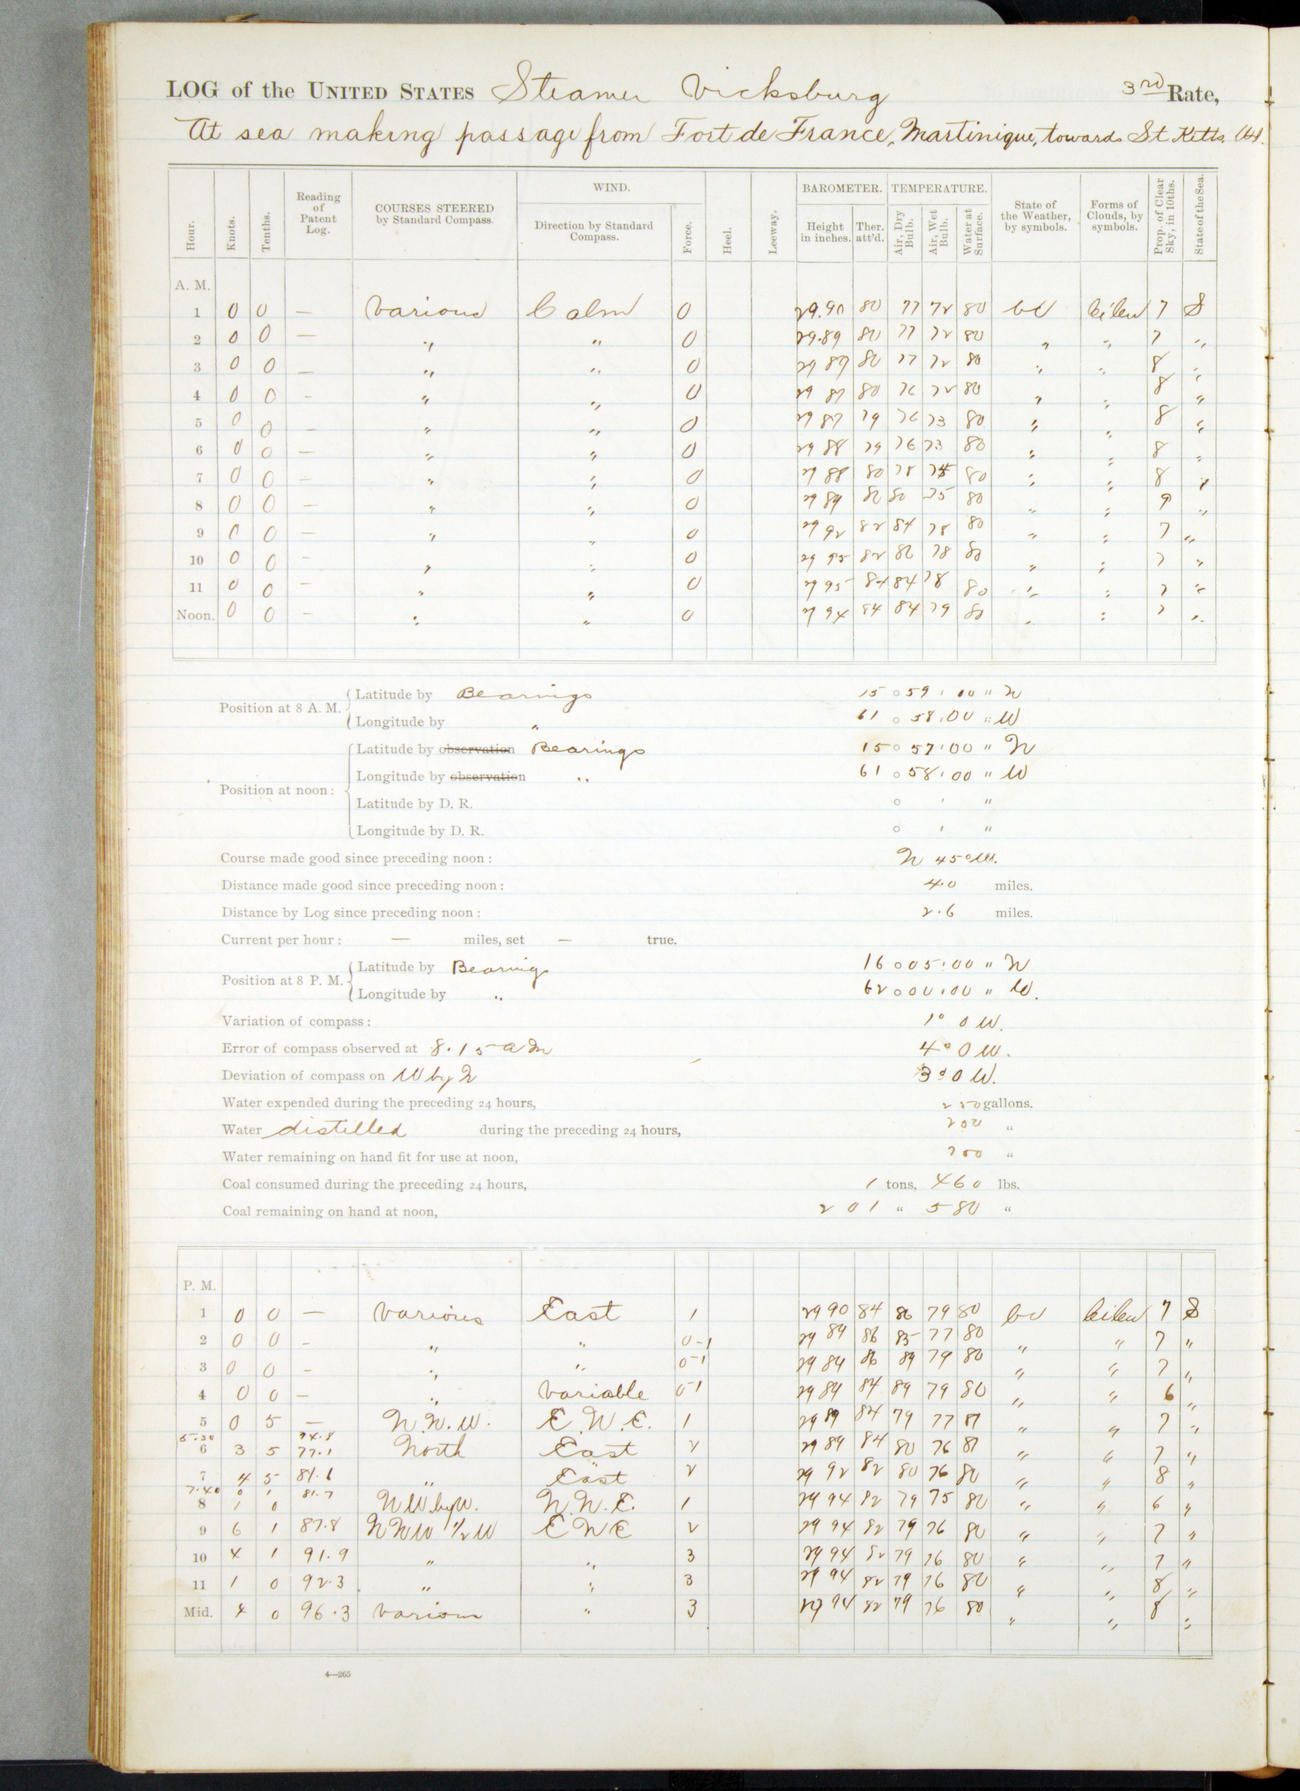 LOG of the UNITED STATES Steamer Vicksburg 3rd Rate,
At sea making passage from Fort de France, Martinique, towards St Kitts,
Hour. Knots. Tenths. Reading of Patent Log. COURSES STEERED by Standard Compass. WIND. Direction by Standard Compass. Force. Heel. Leeway. BAROMETER. Height in inches. Ther. att'd. TEMPERATURE. Air, Dry Bulb. Air, Wet Bulb. Water at Surface. State of the Weather, by symbols. Forms of Clouds, by symbols. Prop. of Clear Sky, in 10ths. State of the Sea.
A. M.
1 0 0 — Various Calm 0 29.90 80 77 72 80 bc 7 S
2 0 0 — " " 0 29.89 80 77 72 80 " " 7 "
3 0 0 — " " 0 29 87 80 77 72 80 " " 8 "
4 0 0 – " " 0 29 87 80 76 72 80 " " 8 "
5 0 0 – " " 0 29 87 79 76 73 80 " " 8 "
6 0 0 – " " 0 29 88 79 76 73 80 " " 8 "
7 0 0 – " " 0 29 88 80 78 80 " " 8 "
8 0 0 – " " 0 29 89 80 75 80 " " 9 "
9 0 0 – " " 0 29 92 82 84 78 80 " " 7 "
10 0 0 – " " 0 29 95 82 78 80 " " 7 "
11 0 0 – " " 0 29 95 84 84 78 80 " " 7 "
Noon. 0 0 – " " 0 29 94 84 84 79 80 " " 7 "
Position at 8 A. M. Latitude by Bearings 15 ° 59 ' 00 " N
Longitude by " 61 ° 58 ' 00 " W
Position at noon: Latitude by observation Bearings 15 ° 57 ' 00 " N
Longitude by observation " 61 ° 58 ' 00 " W
Latitude by D. R. ° ' "
Longitude by D. R. ° ' "
Course made good since preceding noon: N 45° W.
Distance made good since preceding noon: 4.0 miles.
Distance by Log since preceding noon: 2.6 miles.
Current per hour: — miles, set — true.
Position at 8 P. M. Latitude by Bearings 16 ° 05 ' 00 " N
Longitude by " 62 ° 00 ' 00 " W.
Variation of compass: 1° 0 W.
Error of compass observed at 8.15 a m 4° 0 W.
Deviation of compass on W by N 3° 0 W.
Water expended during the preceding 24 hours, 250 gallons.
Water distilled during the preceding 24 hours, 200 "
Water remaining on hand fit for use at noon, 700 "
Coal consumed during the preceding 24 hours, 1 tons, 460 lbs.
Coal remaining on hand at noon, 201 " 580 "
P. M.
1 0 0 — Various East 1 29 90 84 86 79 80 bc 7 S
2 0 0 – " " 0-1 29 89 86 85 77 80 " " 7 "
3 0 0 – " " 0-1 29 84 86 89 79 80 " " 7 "
4 0 0 – " Variable 0-1 29 89 84 89 79 80 " " 6 "
5 0 5 — N.N.W. E.N.E. 1 29 89 84 79 77 81 " " 7 "
5.30 74.8
6 3 5 77.1 North East 2 29 89 84 80 76 81 " " 7 "
7 4 5 81.6 " East 2 29 92 82 80 76 80 " " 8 "
7.40 0 1 81.7
8 1 0 NW by W. N.N.E. 1 29 94 82 79 75 80 " " 6 "
9 6 1 87.8 NNW 1/2 W ENE 2 29 94 82 79 76 80 " " 7 "
10 4 1 91.9 " " 3 29 94 82 79 76 80 " " 7 "
11 1 0 92.3 " " 3 29 94 82 79 76 80 " " 8 "
Mid. 4 0 96.3 Various " 3 29 94 82 79 76 80 " " 8 "
4—265